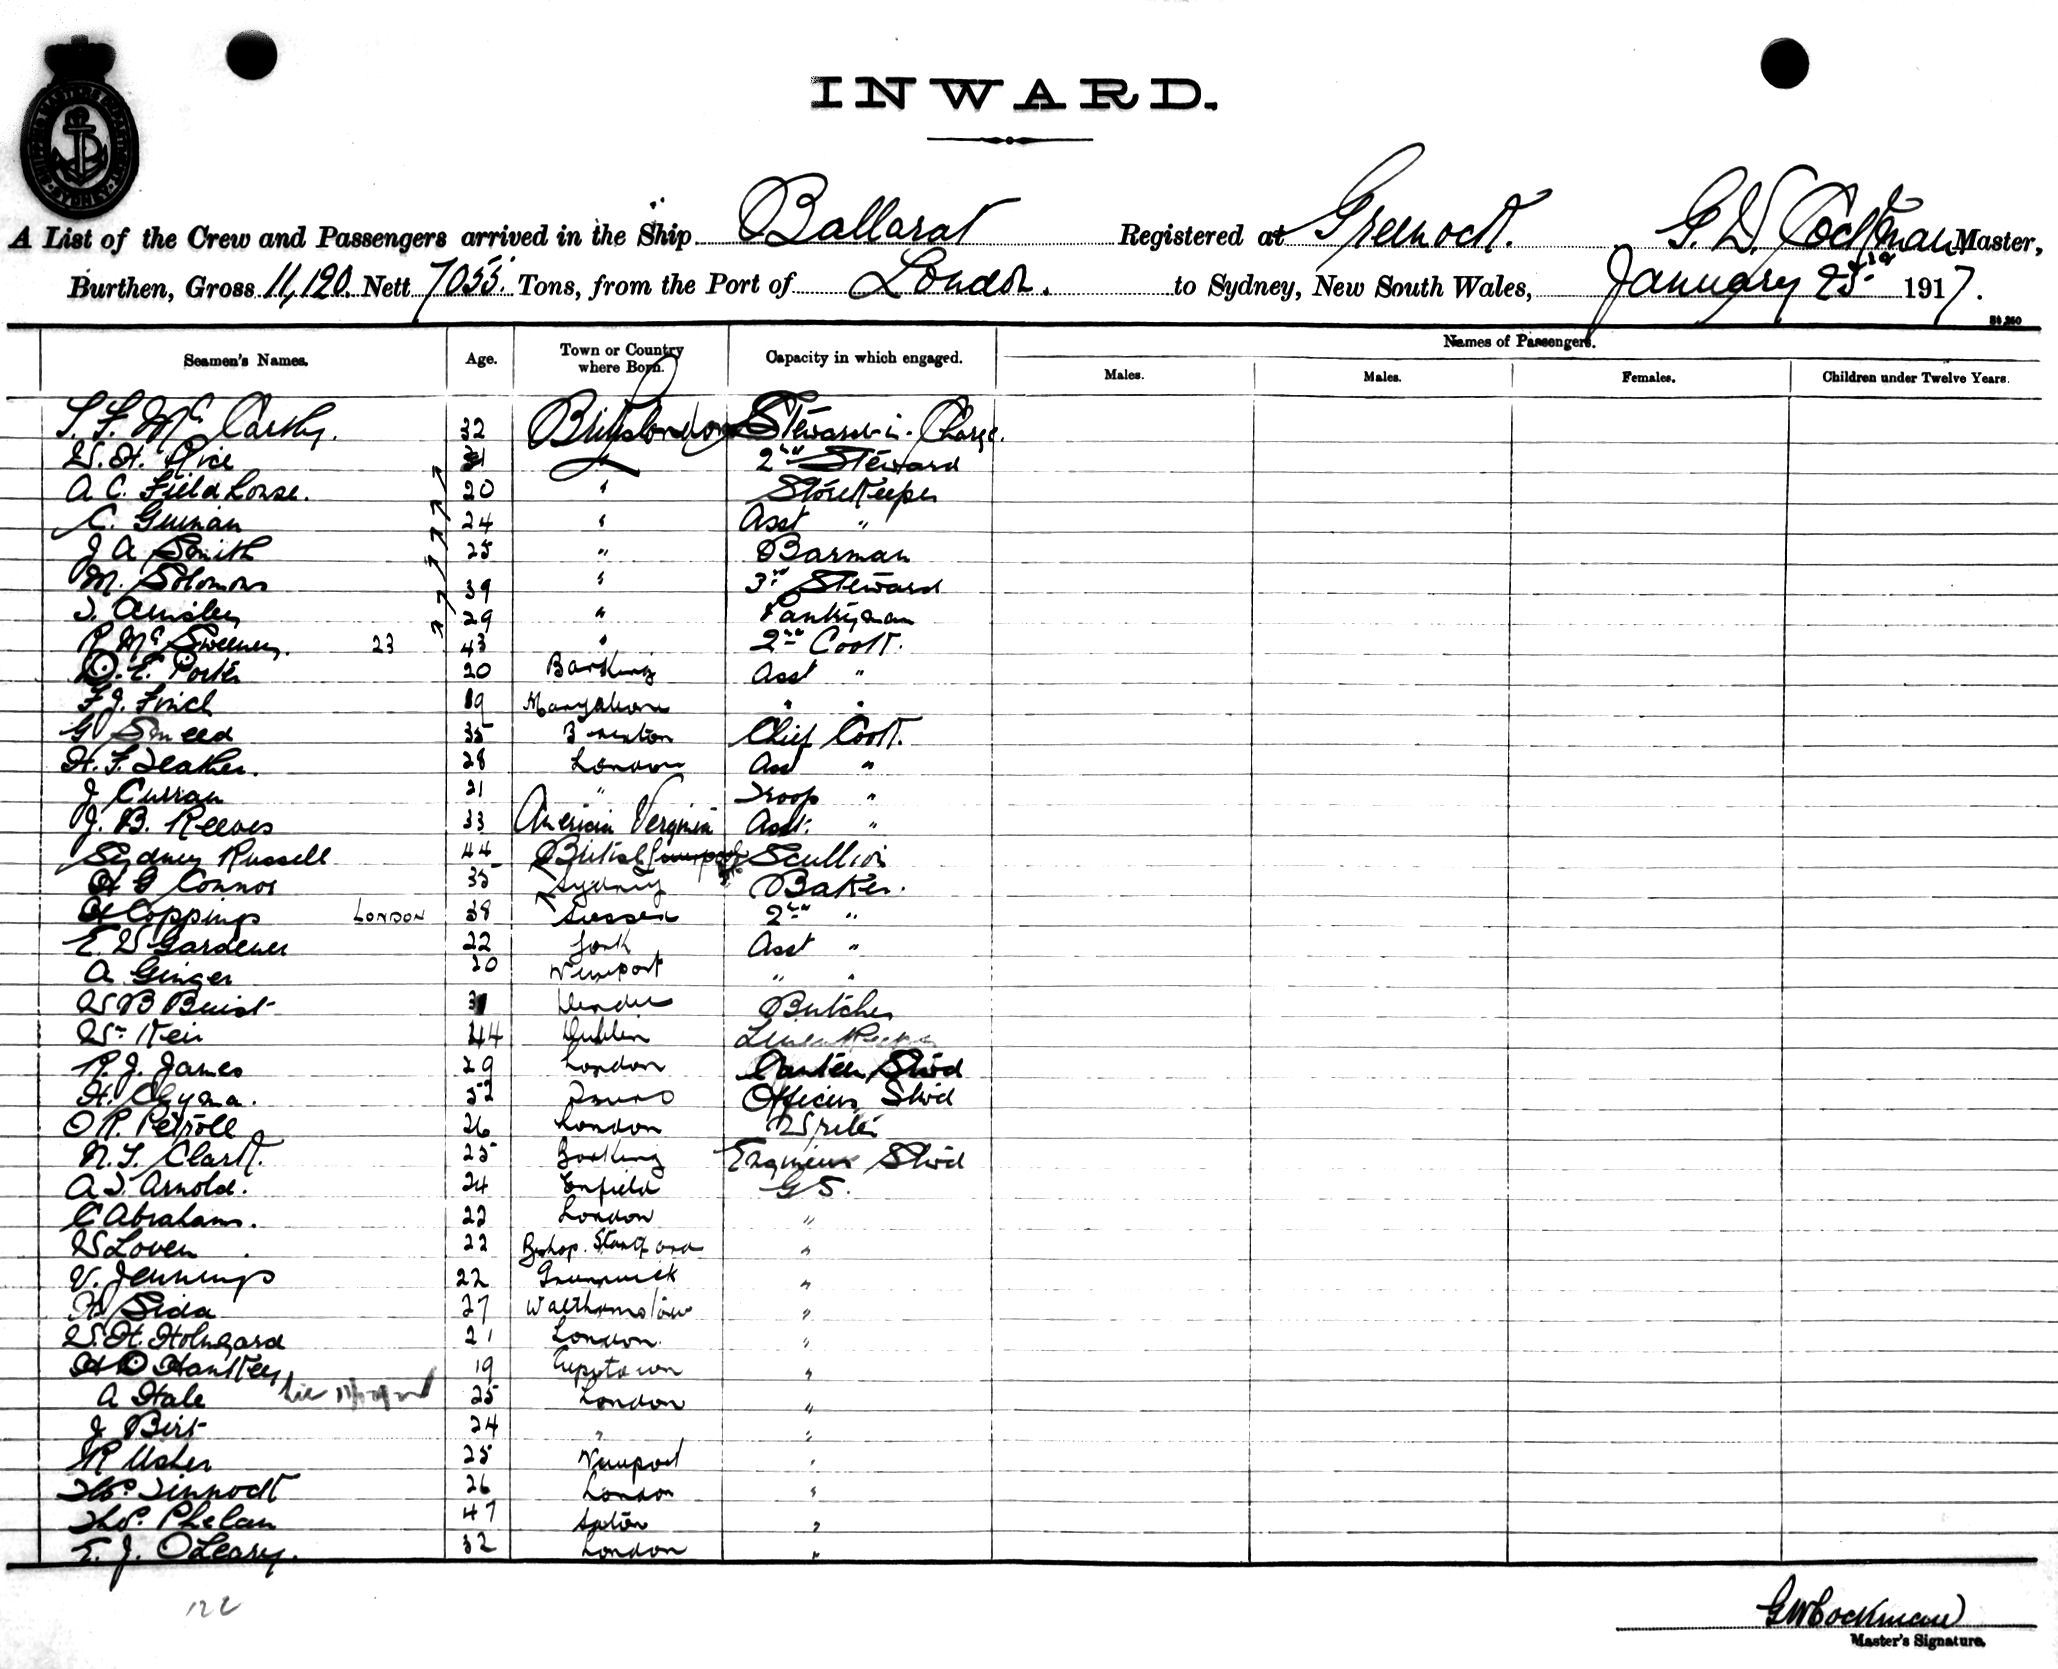 INWARD.
A List of the Crew and Passengers arrived in the Ship Ballarat Registered at Greenock. G. W. Cockman Master,
Burthen, Gross 11,120. Nett 7055. Tons, from the Port of London. to Sydney, New South Wales, January 25th 1917.
Names of Passengers.
Seamen's Names. Age. Town or Country where Born. Capacity in which engaged. Males. Males. Females. Children under Twelve Years.
Mc Carthy. 32 London Steward-in-Charge.
W. H. Rice 2nd Steward
A C. Fieldhouse. 20 " Storekeeper
C. Guinan 24 " Asst "
J A Smith 25 " Barman
M. Solomons 39 " 3rd Steward
29 " Pantryman
R. Mc Sweeney. 23 43 " 2nd Cook.
E. Porter 20 Barking Asst "
F J. Finch 19 " "
G Smeed 35 Chief Cook.
H. F. Leather. 28 London Asst "
J Curran 21 " Troop "
J. B. Reeves 33 American Virginia Asst. "
Sydney Russell 44 British Liverpool Scullion
H G Connor 35 Sydney Baker.
H Coppings LONDON 38 Sussex 2nd "
E. W Gardener 22 York Asst "
A Ginger 20 Newport " "
W B Buist 31 Dundee Butcher
Wm Keir 44 Dublin Linen Keeper
R. J. James 29 London Canteen Stwd
H. Clyma. 52 Truro Officers Stwd
O R. Petroll 26 London Writer
N. T. Clark. 25 Barking Engineers Stwd
A. J. Arnold. 24 Enfield G S.
C Abrahams. 22 London "
W Loven 22 Bishop. Stortford "
V. Jennings 22 Greenwich "
H Sida 27 Walthamstow "
W. H. Holmgard 21 London. "
H D Hankey 19 Capetown "
A Hale 25 London "
J Birt 24 " "
R Usher 25 Newport "
Thos. Tinnock 26 London "
Thos. Phelan 47 "
E. J. O'Leary. 32 London "
122
G W Cockman
Master's Signature.